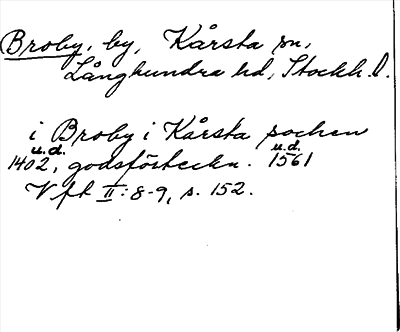 Broby, by, Kårsta sn,
Långhundra hd, Stockh. l.
i Broby i Kårsta socken
u.d. u.d.
1402, godsförteckn. 1561
Vft II:8-9, s. 152.